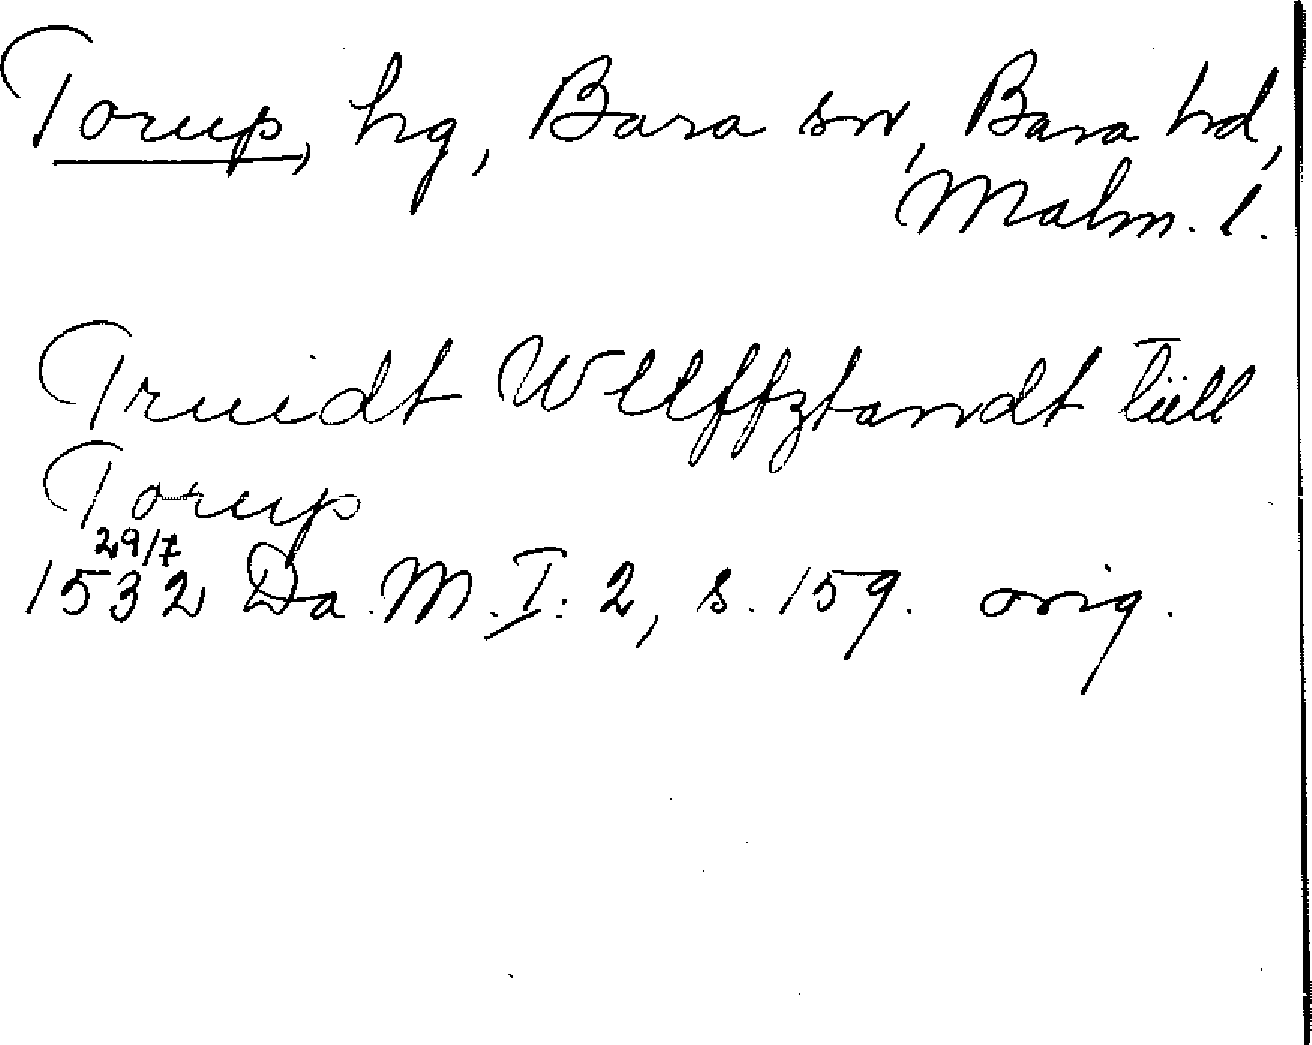 Torup, hg, Bara sn, Bara hd,
Malm. l.
Truidt Wllffztandt tiill
Torup
29/7
1532 Da. M. I: 2, s. 159. orig.